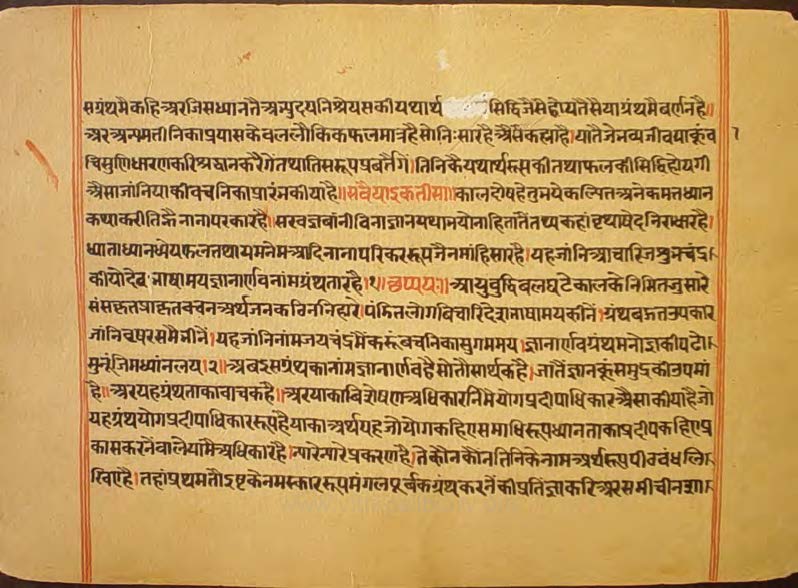 सग्रंथमैकहिअरजिसध्यानतैअभ्युदयनिश्रेयसकीयथार्थ सिद्धिजैसेहोयतैसेयाग्रंथमैवर्णनहै॥
अरअन्यमतीनिकाप्रयासकेवललौकिकफलमात्रहैसोनिःसारहैअैसैकह्याहै।यातैजेभव्यजीवयाकूंव १
सुणिधारणकरिश्रद्धानकरैंगेतथातिसरूपप्रवर्तैंगे।तिनिकैयथार्थरूपकीतथाफलकीसिद्धिहोयगी
अैसाजांनियाकीवचनिकाप्रारंभकीयाहै॥सवैयाइकतीसा॥कालदोषहेतुभयेकल्पितअनेकमतध्यान
कथाकरीतिकैनानापरकारहै।सरवज्ञबांनीविनाज्ञानयथानयोनाहितातैंतथ्यकहां निराधारहै।
ध्याताध्यानध्येयफलतथायमनेमआदिनानापरिकररूपजैनमांहिसारहै।यहजांनिआचारिजशुभचंद्र
कीयोदेवभाषामयज्ञानार्णवनांमग्रंथतारहै।१।छप्पय॥आयुबुद्धिबलघटेकालकेनिमितजुसारे
संसकृतप्राकृतवचनअर्थजनकरिननिहारे।पंडितलोगविचारिदेशभाषामयकीनें।ग्रंथबहुतउपकार
जांनिचपरसमैभीनें।यहजांनिनांमजयचंद्रमैंकरूंवचनिकासुगममय।ज्ञानार्णवग्रंथमनोज्ञकीपढो
सुनूंजिमध्यांनलय।२॥अबइसग्रंथकानांमज्ञानार्णवहैसोतौसार्थकहै।जातैंज्ञानकूंसमुद्रकीउपमां
है॥अरयहग्रंथताकावाचकहै॥अरयाकाविशेषणअधिकारनिमैंयोगप्रदीपाधिकारअैसाकीयाहैजो
यहग्रंथयोगप्रदीपाधिकाररूपहैयाकाअर्थयहजोयोगकहिएसमाधिरूपध्यानताकाप्रदीपकहिएप्र
कासकरनेंवालेयामैअधिकारहै।न्यारेन्यारेप्रकरणहै।तेकौनकौनतिनिकेनामअर्थरूप लि
खिएहै।तहांप्रथमतौइष्टकेनमस्काररूपमंगलपूर्वकग्रंथकरनेंकीप्रतिज्ञाकरिअरसमीचीनशा